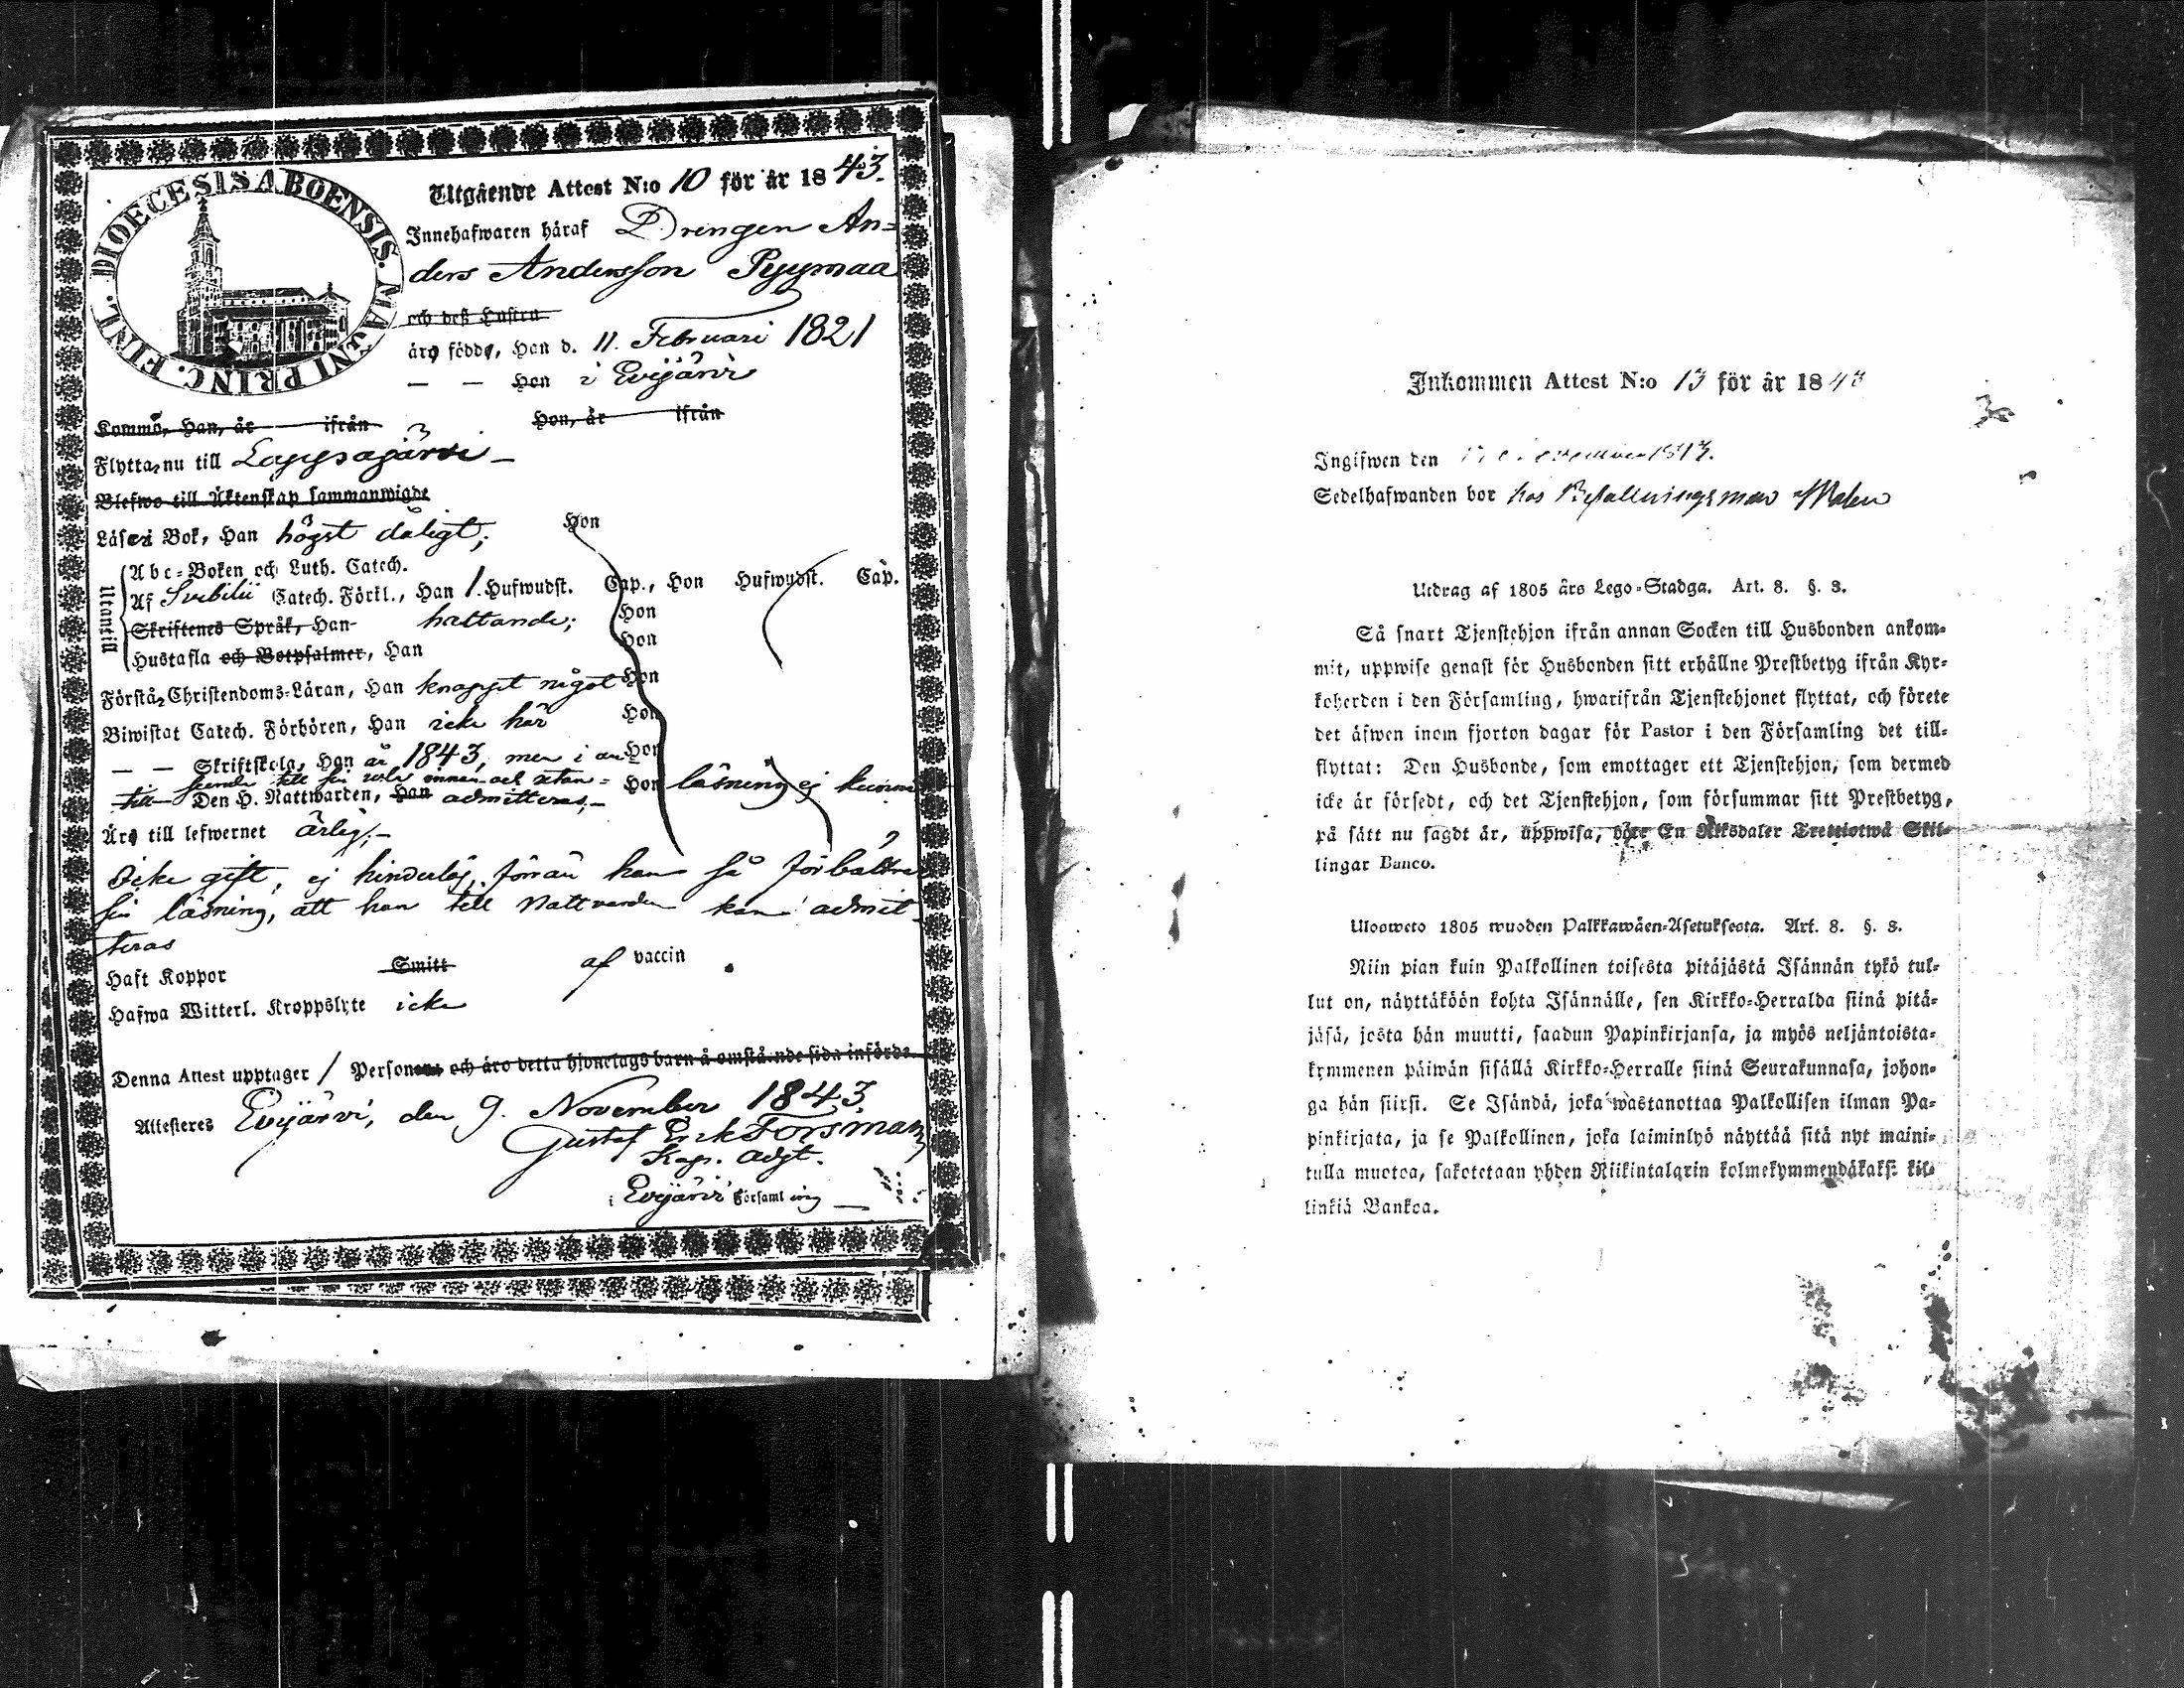 DIOECESIS ABOENSIS. MAGNI PRINC. FINL.
Utgående Attest N:o 10 för år 1843.
Innehafwaren häraf Drengen An=
ders Andersson Pyymaa
och deß Hustru
äro födde, Han d. 11. Februari 1821
— — Hon i Evijärvi
Kommo, Han, år ifrån Hon, år ifrån
Flytta nu till Lappajärvi —
Blefwo till Äktenskap sammanwigde
Läser i Bok, Han högst dåligt; Hon
Utantill
Abc-Boken och Luth. Catech.
Af Svebilii Catech. Förkl., Han 1. Hufwudst. Cap., Hon Hufwudst. Cap.
Skriftenes Språk, Han hattande; Hon
Hustafla och Botpsalmer, Han Hon
Förstå Christendoms-Läran, Han knappt något Hon
Biwistat Catech. Förhören, Han icke här Hon
— — Skriftskola, Han år 1843, men i an Hon
seende till sin usla innan och utan=
till Den H. Nattwarden, Han admitteras,— Hon läsning ej kunna
Äro till lefwernet ärlig;—
Icke gift, ej hinderlös, förän han så förbättrar
sin läsning, att han till Nattvarden kan admit-
teras
Haft Koppor Smitt af vaccin
Hafwa Witterl. Kroppslyte icke
Denna Attest upptager / Personer och äro detta hjonelags barn å omstående sida införda.
Attesteres Evijärvi, den 9. November 1843
Gustaf Erik Forsman
Kap. Adjt.
i Evijärvi Församling —
Inkommen Attest N:o 13 för år 1843
Ingifwen den
Sedelhafwanden bor hos Befallningsman
Utdrag af 1805 års Lego-Stadga. Art. 8. §. 3.
Så snart Tjenstehjon ifrån annan Socken till Husbonden ankom-
mit, uppwise genast för Husbonden sitt erhållne Prestbetyg ifrån Kyr-
koherden i den Församling, hwarifrån Tjenstehjonet flyttat, och förete
det äfwen inom fjorton dagar för Pastor i den Församling det till-
flyttat: Den Husbonde, som emottager ett Tjenstehjon, som dermed
icke är försedt, och det Tjenstehjon, som försummar sitt Prestbetyg,
på sätt nu sagdt är, uppwisa, böte En Riksdaler Trettiotwå Skil-
lingar Banco.
Ulosweto 1805 wuoden Palkkawäen-Asetuksesta. Art. 8. §. 3.
Niin pian kuin Palkollinen toisesta pitäjästä Isännän tykö tul-
lut on, näyttäköön kohta Isännälle, sen Kirkko-Herralda siinä pitä-
jäsä, josta hän muutti, saadun Papinkirjansa, ja myös neljäntoista-
kymmenen päiwän sisällä Kirkko-Herralle siinä Seurakunnasa, johon-
ga hän siirsi. Se Isändä, joka wastanottaa Palkollisen ilman Pa-
pinkirjata, ja se Palkollinen, joka laiminlyö näyttää sitä nyt maini-
tulla muotoa, sakotetaan yhden Riikintalarin kolmekymmendäkaksi kil-
linkiä Bankoa.